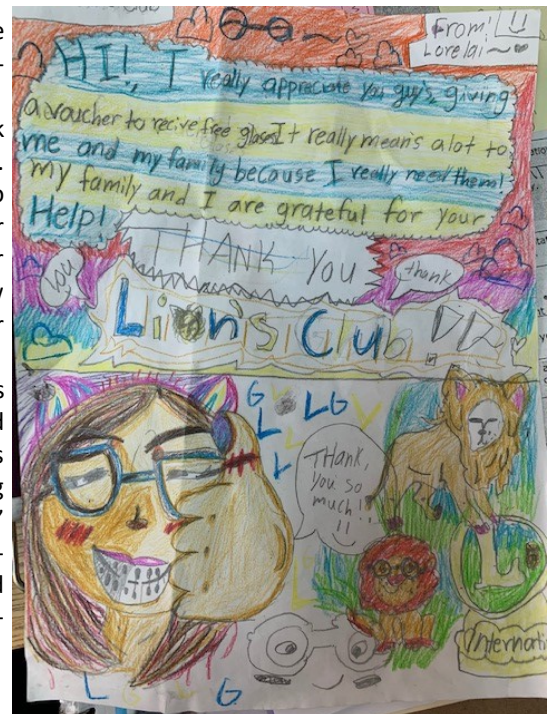 From!
Lorelai
HI!, I really appreciate you guy's, giving
a voucher to recive free glases It really mean's alot to
me and my family because I really need them!
my family and I are grateful for your
Help!
THANK YOU
you
thank
Lion's Club
G
L LG
L
THank,
you so
much!!
L
Internati
L
G